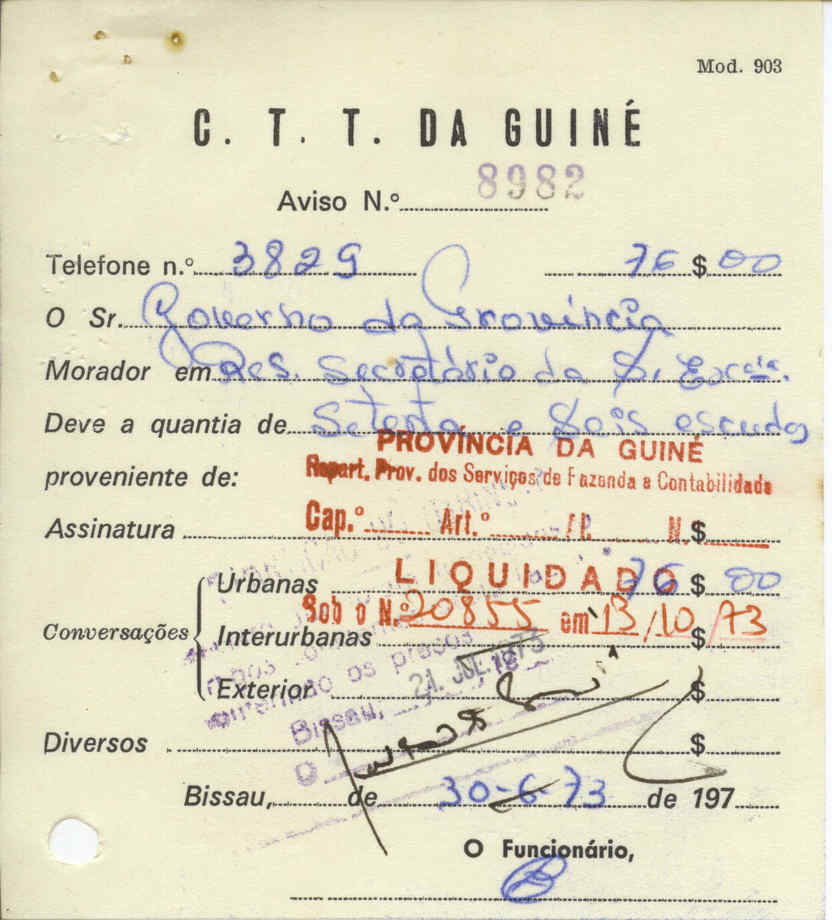 Mod. 903
C. T. T. DA GUINÉ
Aviso N.º 8982
Telefone n.º 3829 76 $ 00
O Sr. Governo da Província
Morador em Res. Secretário da S. Excia.
Deve a quantia de Setenta e Seis escudos
PROVÍNCIA DA GUINÉ
proveniente de:
Repart. Prov. dos Serviços de Fazenda e Contabilidade
Assinatura $
Cap.º Art.º N.
Conversações
Urbanas 76 $ 00
LIQUIDADO
Sob o N.º 20855 em 13/10/73
Interurbanas $
os preços
21. JUL. 1973
Exterior $
Bissau,
Diversos $
O
Bissau, de 30-6-73 de 197
O Funcionário,